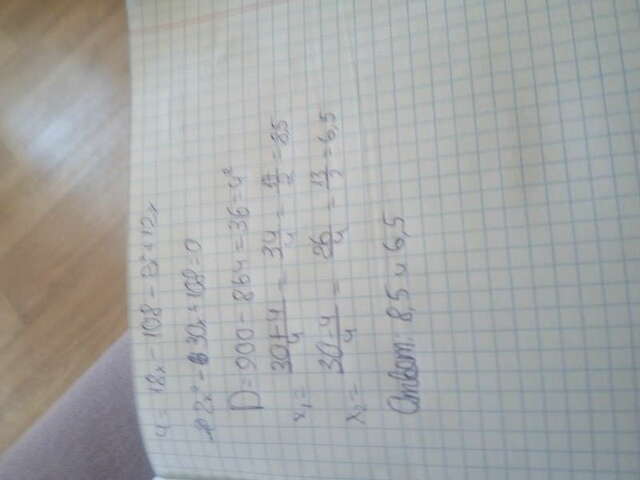 y = 18x - 108 - 2x² + 12x
2x² - 30x + 108 = 0
D = 900 - 864 = 36 = 4²
x₁ = (30+4)/4 = 34/4 = 17/2 = 8,5
x₂ = (30-4)/4 = 26/4 = 13/2 = 6,5
Ответ: 8,5 и 6,5